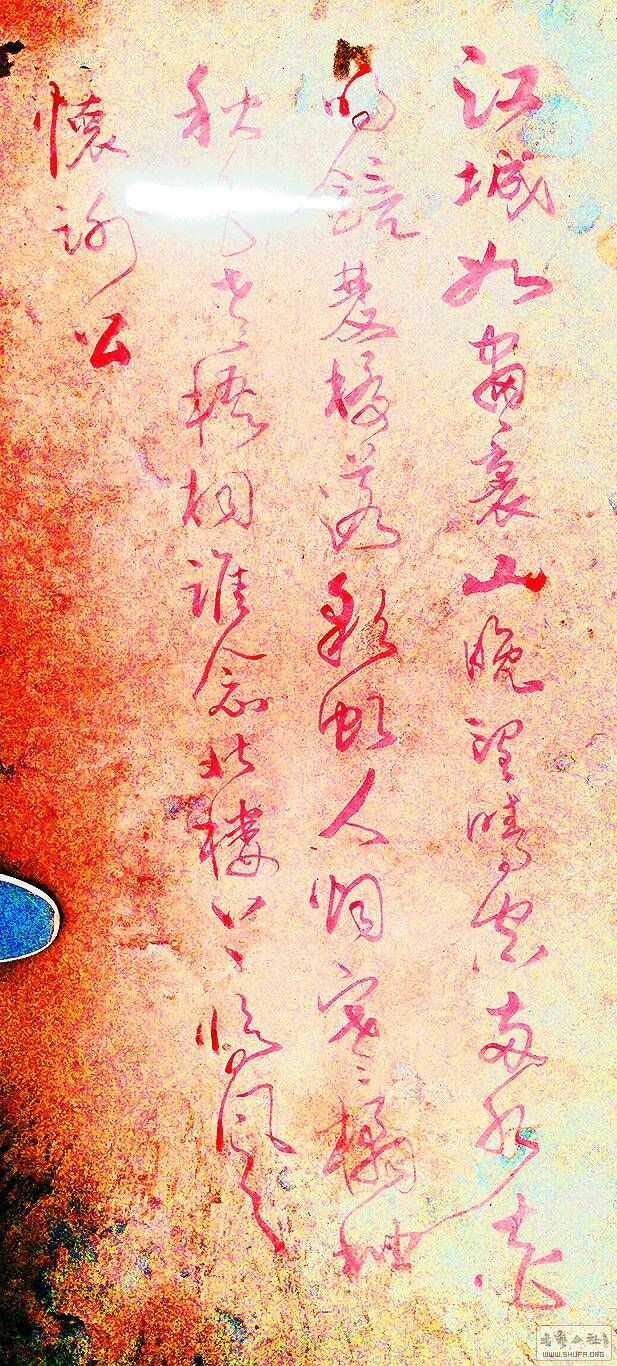 江城如畫裏山晚望晴空兩水夾
明鏡雙橋落彩虹人烟寒橘柚
秋色老梧桐誰念北樓上臨風
懷謝公
WWW.SHUFA.ORG